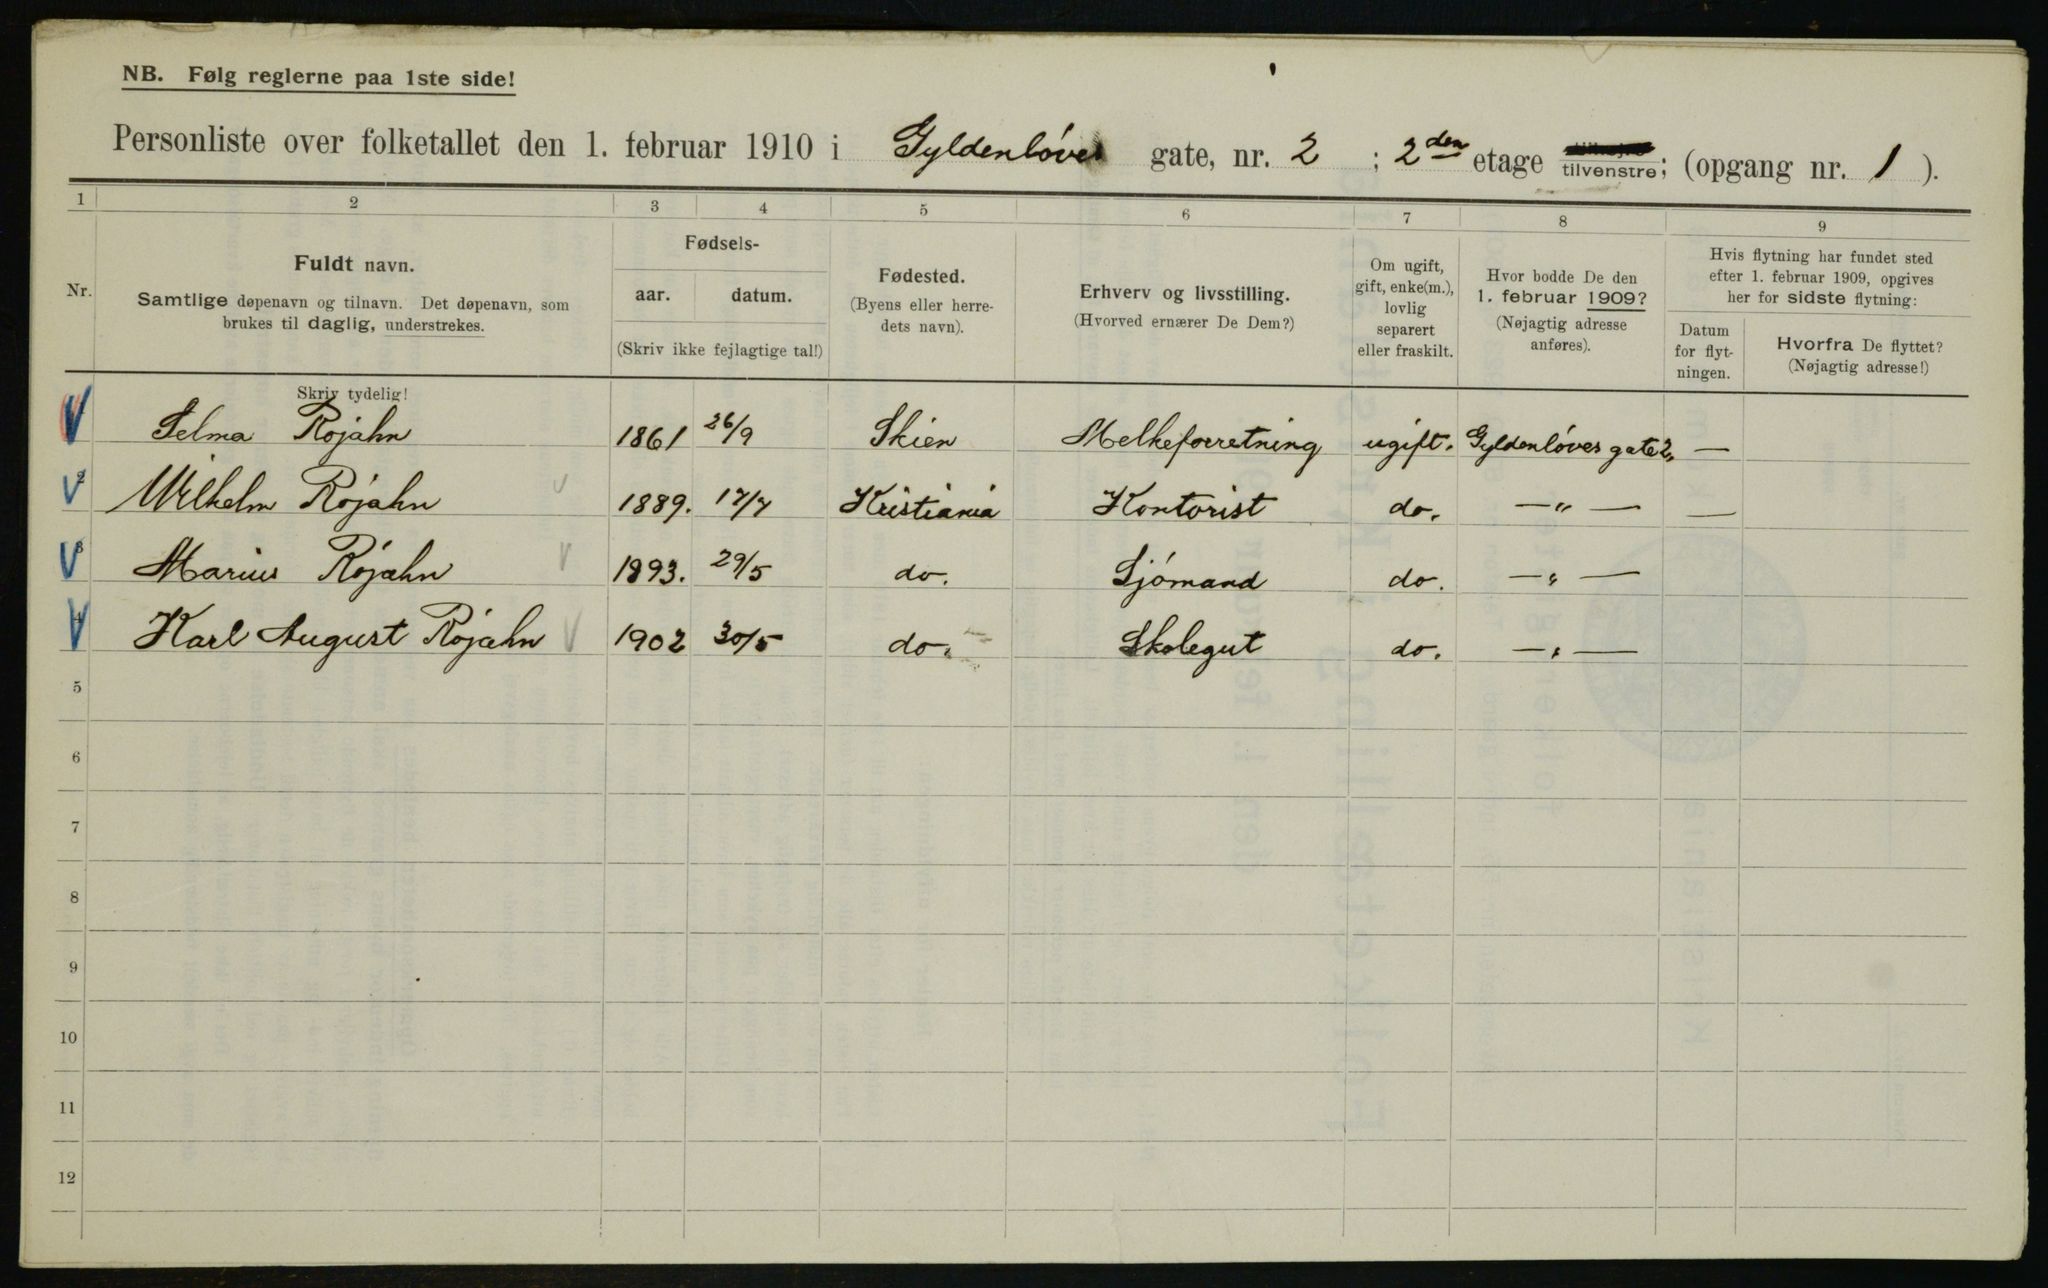 NB. Følg reglerne paa 1ste side!
Personliste over folketallet den 1. februar 1910 i Gyldenløves gate, nr. 2 ; 2den etage tilvenstre; (opgang nr. 1 ).
1 2 3 4 5 6 7 8 9
Nr.
Fuldt navn.
Samtlige døpenavn og tilnavn. Det døpenavn, som
brukes til daglig, understrekes.
Skriv tydelig!
Fødsels-
aar. datum.
(Skriv ikke fejlagtige tal!)
Fødested.
(Byens eller herre-
dets navn).
Erhverv og livsstilling.
(Hvorved ernærer De Dem?)
Om ugift,
gift, enke(m.),
lovlig
separert
eller fraskilt.
Hvor bodde De den
1. februar 1909?
(Nøjagtig adresse
anføres).
Hvis flytning har fundet sted
efter 1. februar 1909, opgives
her for sidste flytning:
Datum
for flyt-
ningen.
Hvorfra De flyttet?
(Nøjagtig adresse!)
Selma Rojahn 1861 26/9 Skien Melkeforretning ugift. Gyldenløves gate 2. —
2 Wilhelm Rojahn 1889. 17/7 Kristiania Kontorist do. —"— —
3 Marius Rojahn 1893. 29/5 do. Sjømand do. —"—
4 Karl August Rojahn 1902 30/5 do. Skolegut do. —"—
5
6
7
8
9
10
11
12